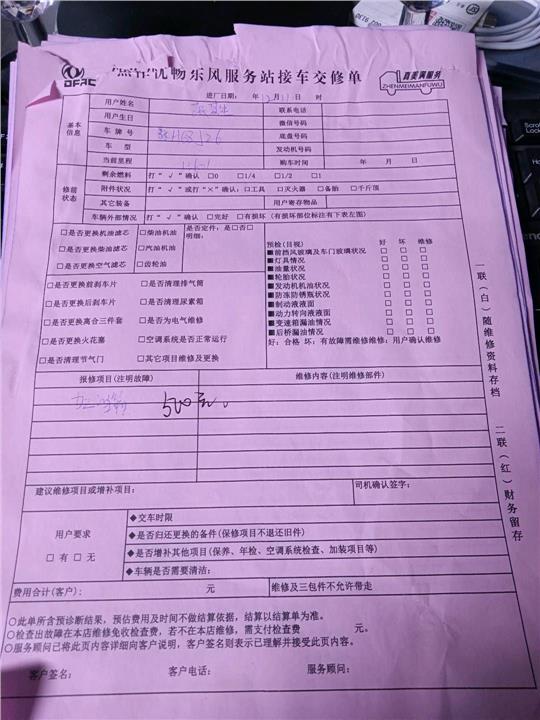 DFAC
优畅东风服务站接车交修单
真美满服务
ZHENMEIMANFUWU
进厂日期： 年12月11日 时
基本信息
用户姓名 联系电话
用户生日 微信号码
车牌号 底盘号码
车 型 发动机号码
当前里程 购车时间 年 月 日
修前状态
剩余燃料 打“√”确认 □0 □1/4 □1/2 □1
附件状况 打“√”或打“×”确认：□工具 □灭火器 □备胎 □千斤顶
其它装备 用户寄存物品
车辆外部情况 打“√”确认 □完好 □有损坏（有损坏部位标注有下表左图）
□是否更换机油滤芯 □柴油机油 是否定件：是□否□
□是否更换柴油滤芯 □汽油机油 明细：
□是否更换空气滤芯 □齿轮油
□是否更换前刹车片 □是否清理排气筒
□是否更换后刹车片 □是否清理尿素箱
□是否更换离合三件套 □是否为电气维修
□是否更换火花塞 □空调系统是否正常运行
□是否清理节气门 □其它项目维修及更换
预检（目视） 好 坏 维修
■前挡风玻璃及车门玻璃状况 □ □ □
■灯具情况 □ □ □
■油量状况 □ □ □
■轮胎状况 □ □ □
■发动机机油状况 □ □ □
■防冻防锈瓶状况 □ □ □
■制动液液面 □ □ □
■动力转向液液面 □ □ □
■变速箱漏油情况 □ □ □
■后桥漏油情况 □ □ □
好：合格 坏：有故障需维修维修：用户确认维修
报修项目（注明故障） 维修内容（注明维修部件）
500元。
建议维修项目或增补项目： 司机确认签字：
用户要求
□ 有 □ 无
◆交车时限
◆是否归还更换的备件（保修项目不退还旧件）
◆是否增补其他项目（保养、年检、空调系统检查、加装项目等）
◆车辆是否需要清洁：
费用合计（客户）： 元 维修及三包件不允许带走
○此单所含预诊断结果，预估费用及时间不做结算依据，结算以结算单为准。
○检查出故障在本店维修免收检查费，若不在本店维修，需支付检查费 元。
○服务顾问已将此页内容详细向客户说明，客户签名则表示已理解并接受此页内容。
客户签名： 客户电话： 服务顾问：
一联（白）随维修资料存档
二联（红）财务留存